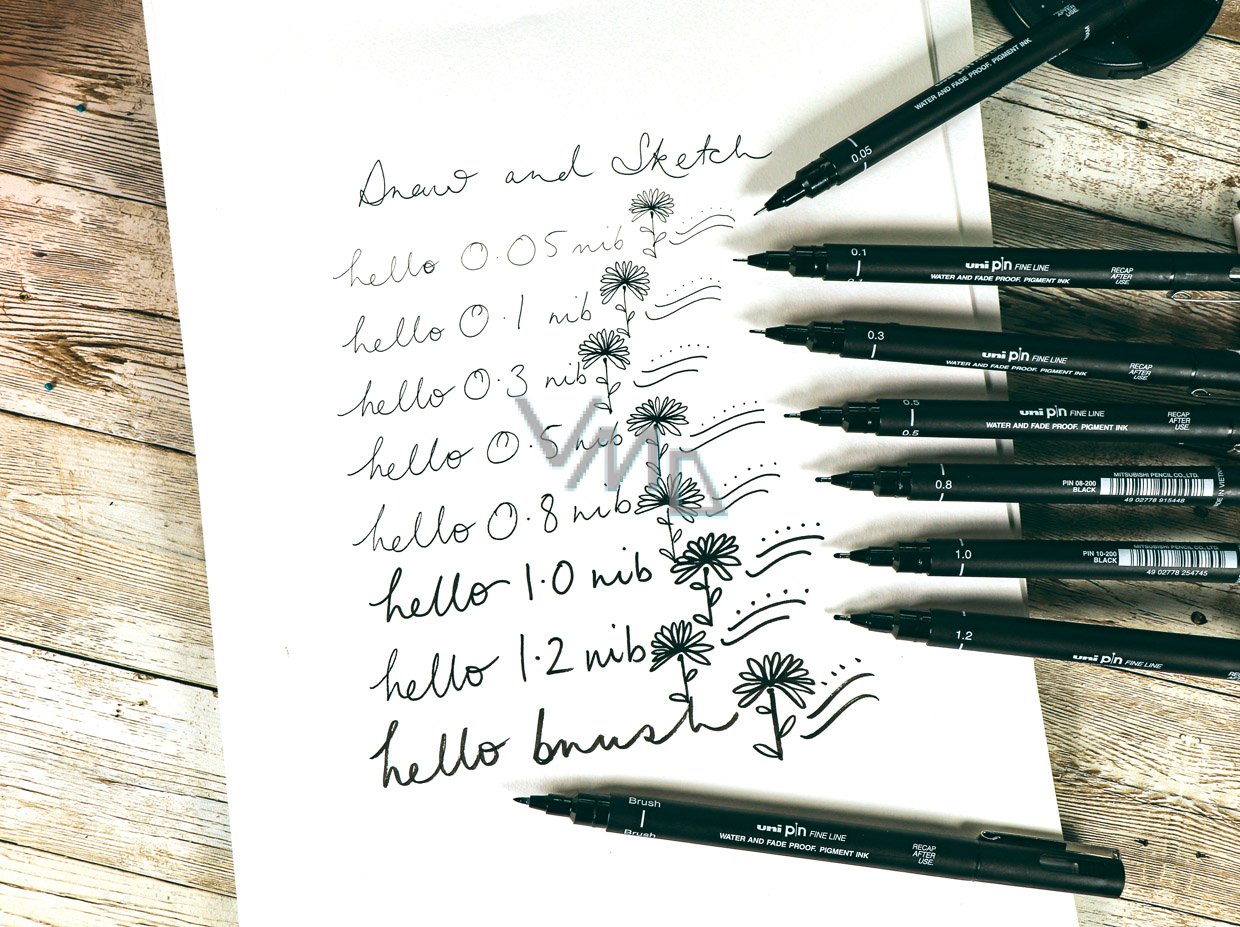 Draw and Sketch
hello 0.05 nib
hello 0.1 nib
hello 0.3 nib
hello 0.5 nib
hello 0.8 nib
hello 1.0 nib
hello 1.2 nib
hello brush
VMD
WATER AND FADE PROOF. PIGMENT INK
USE
0.05
0.1
uni pin FINE LINE
WATER AND FADE PROOF. PIGMENT INK
RECAP
AFTER
USE
0.3
uni pin FINE LINE
WATER AND FADE PROOF. PIGMENT INK
RECAP
AFTER
USE
0.5
0.5
uni pin FINE LINE
WATER AND FADE PROOF. PIGMENT INK
RECAP
AFTER
USE
0.8
PIN 08-200
BLACK
MITSUBISHI PENCIL CO., LTD.
49 02778 915448
1.0
PIN 10-200
BLACK
MITSUBISHI PENCIL CO., LTD.
49 02778 254745
1.2
uni pin FINE LINE
Brush
Brush
uni pin FINE LINE
WATER AND FADE PROOF. PIGMENT INK
RECAP
AFTER
USE